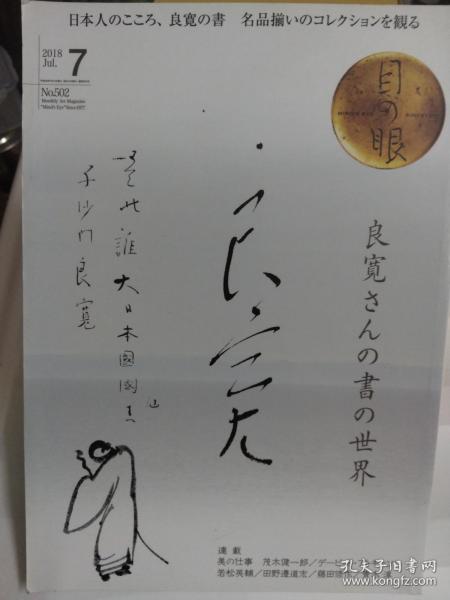 日本人のこころ、良寛の書 名品揃いのコレクションを観る
2018
Jul. 7
No.502
Monthly Art Magazine
"Mind's Eye" Since 1977
目の眼
良寛さんの書の世界
良寛
是此誰 大日本國國上
沙門良寛
連載
美の仕事 茂木健一郎／デー
若松英輔／田野邉道宏／藤田
孔夫子旧书网